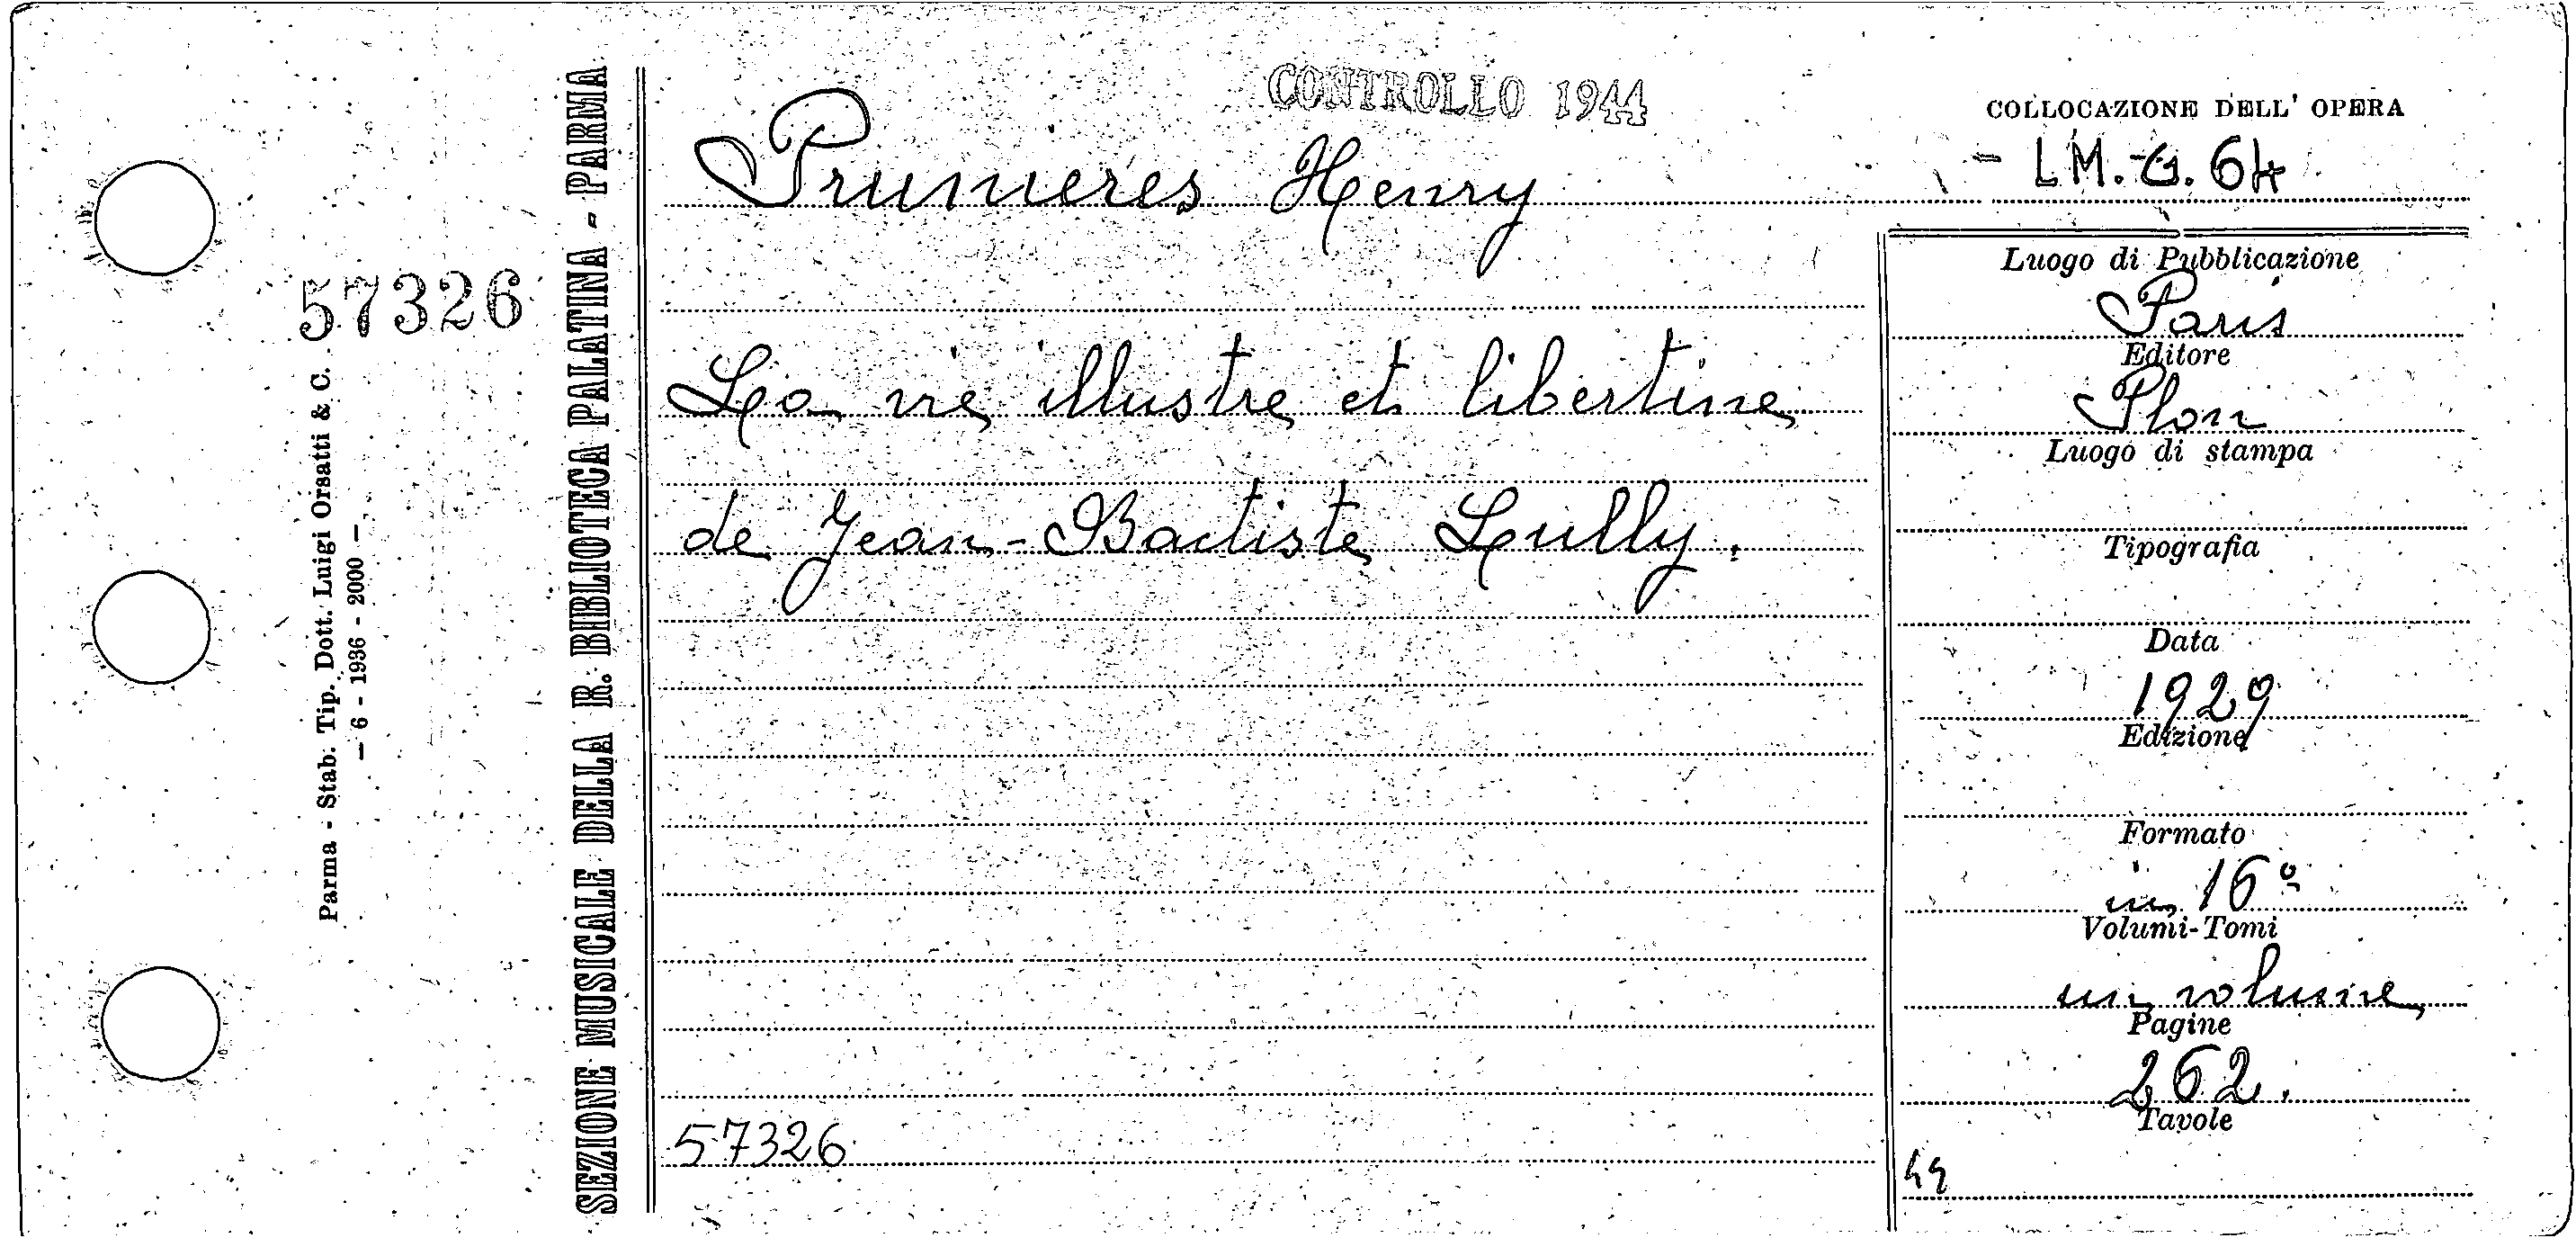 CONTROLLO 1944
COLLOCAZIONE DELL' OPERA
LM. G. 64
Prunieres Henry
57326
La vie illustre et libertine
de Jean-Baptiste Lully.
57326
Luogo di Pubblicazione
Paris
Editore
Plon
Luogo di stampa
Tipografia
Data
1929
Edizione
Formato
in 16º
Volumi-Tomi
un volume
Pagine
262.
Tavole
SEZIONE MUSICALE DELLA R. BIBLIOTECA PALATINA - PARMA
Parma - Stab. Tip. Dott. Luigi Orsatti & C.
— 6 - 1936 - 2000 —